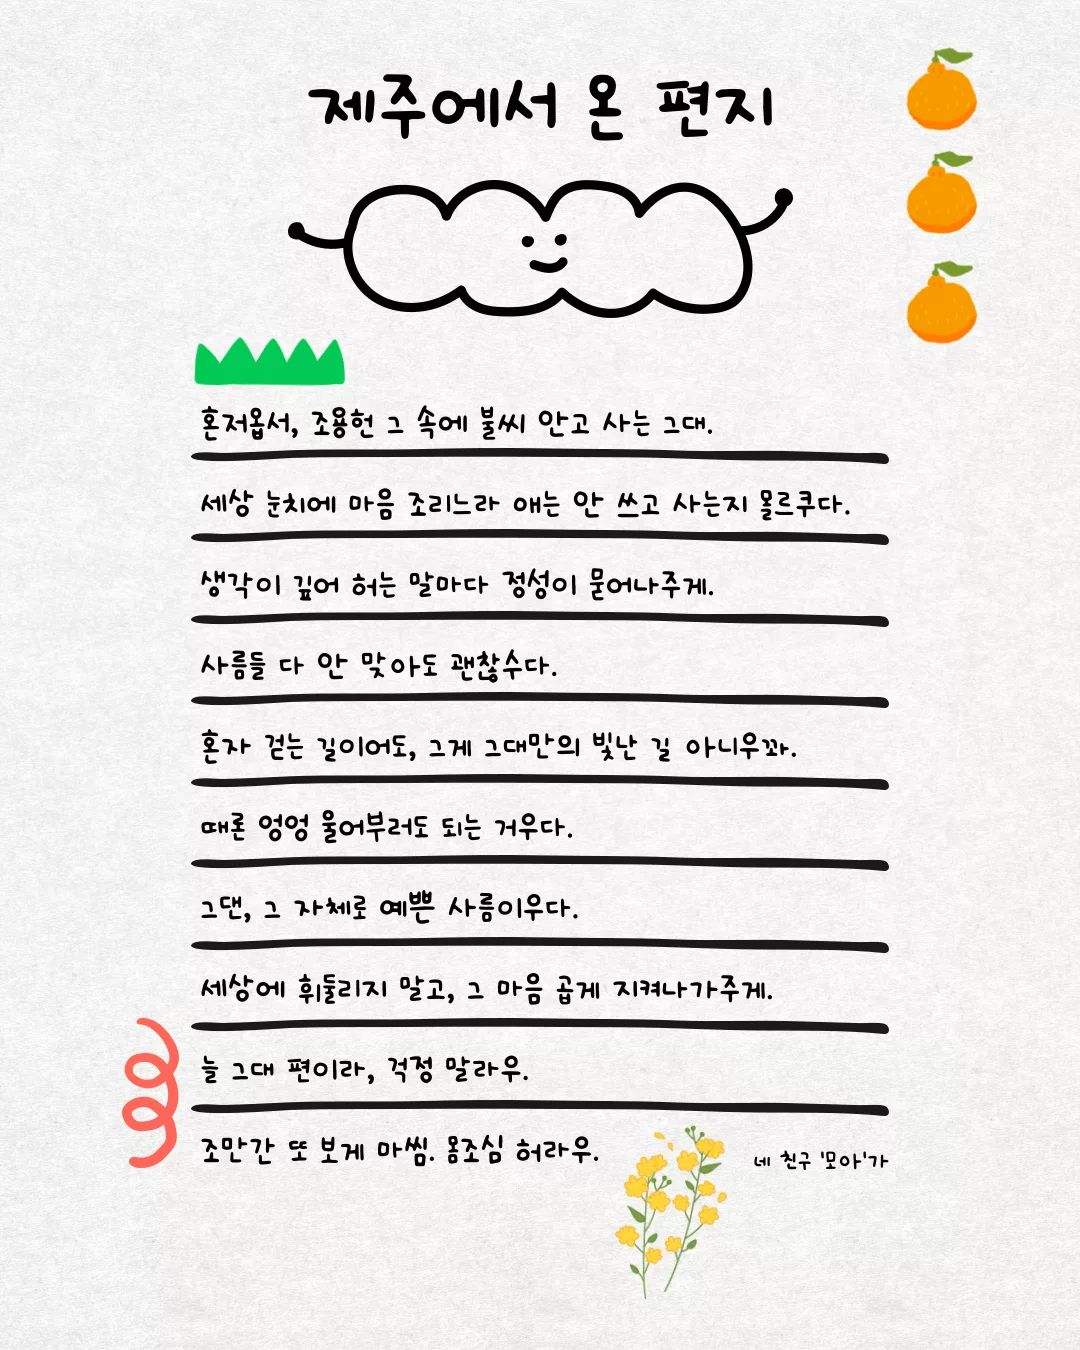 제주에서 온 편지
혼저옵서, 조용헌 그 속에 불씨 안고 사는 그대.
세상 눈치에 마음 조리느라 애는 안 쓰고 사는지 몰르쿠다.
생각이 깊어 허는 말마다 정성이 묻어나주게.
사름들 다 안 맞아도 괜찮수다.
혼자 걷는 길이어도, 그게 그대만의 빛난 길 아니우꽈.
때론 엉엉 울어부러도 되는 거우다.
그댄, 그 자체로 예쁜 사름이우다.
세상에 휘둘리지 말고, 그 마음 곱게 지켜나가주게.
늘 그대 편이라, 걱정 말라우.
조만간 또 보게 마씸. 몸조심 허라우.
네 친구 '모아'가